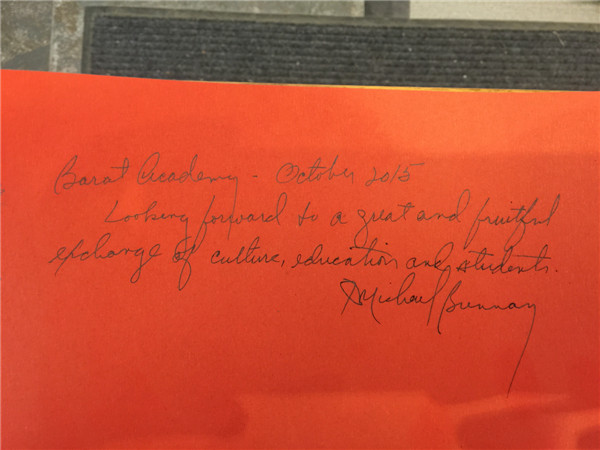 Barat Academy - October 2015
Looking forward to a great and fruitful
exchange of culture, education and students.
Michael Brennan